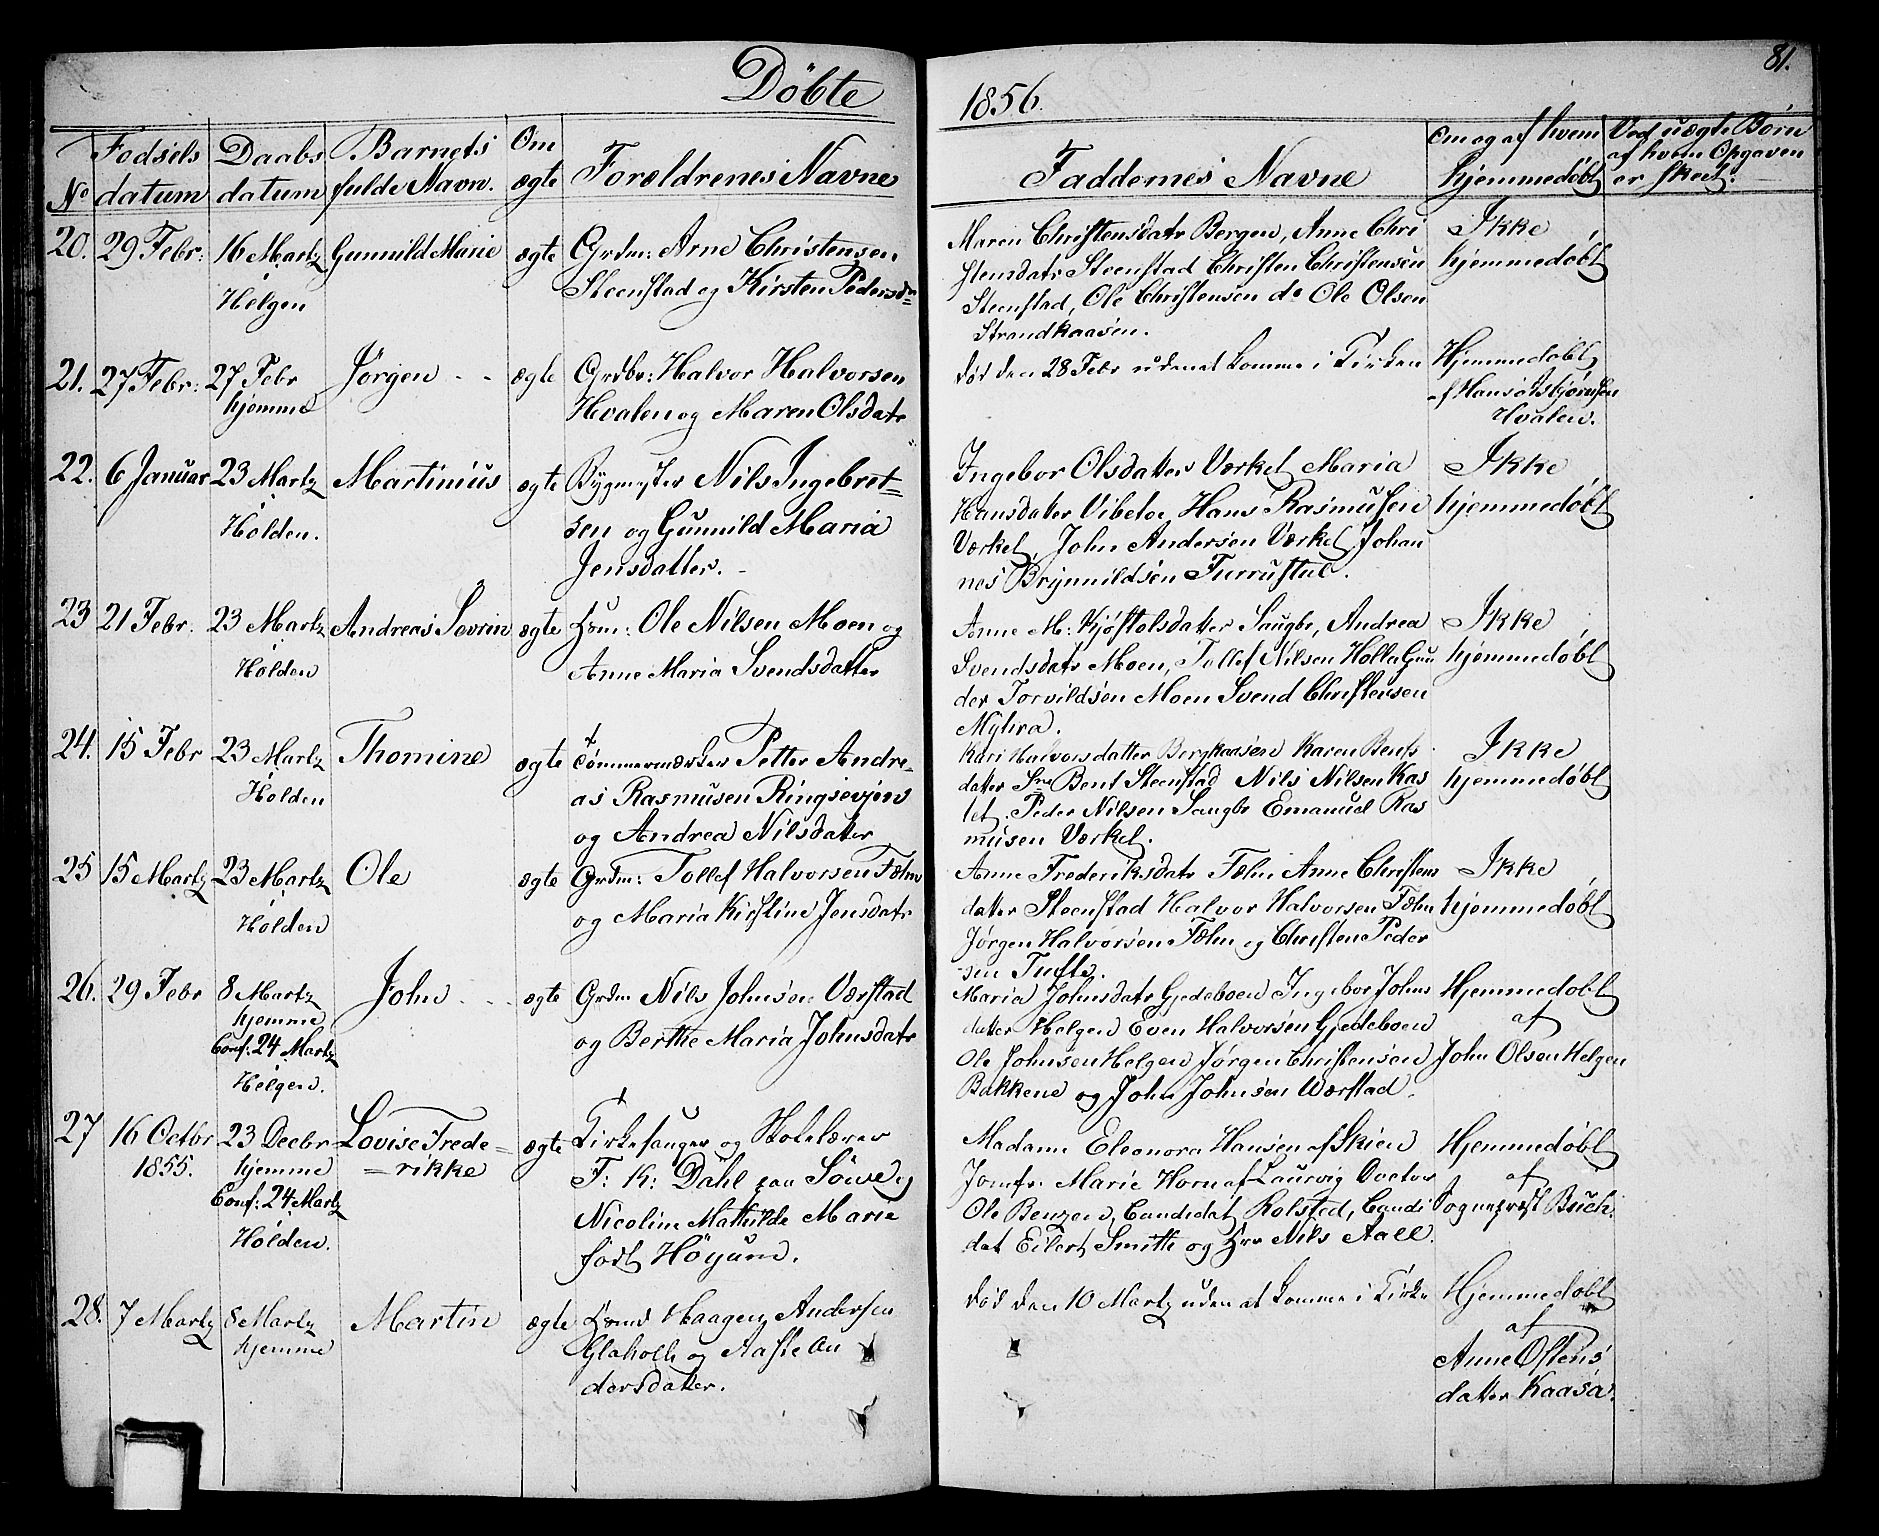 Döbte
1856.
81.
No
Fødsels datum
Daabs datum
Barnets fulde Navn.
Om ægte
Forældrenes Navne
Faddernes Navne
Om og af hvem hjemmedøbt
Ved uægte Börn af hvem Opgaven er skeet.
20. 29 Febr: 16 Martz Gunnild Marie ægte Grdm: Arne Christensen
i Helgen
Steenstad og Kirsten Pedersdr
Maren Christensdatr Bergen, Anne Chri
stensdatr Steenstad Christen Christensen
Steenstad, Ole Christensen do Ole Olsen
Strandkaasen.
Ikke
hjemmedøbt
21. 27 Febr: 27 Febr Jörgen - - ægte Grdbr: Halvor Halvorsen
hjemme
Hvalen og Maren Olsdatr
död den 28 Febr uden at komme i Kirken
Hjemmedøbt
af Hans Asbjørnsen
Hvalen.
22. 6 Januar 23 Martz Martinius ægte Bygmester Nils Ingebret-
i Holden.
sen og Gunnild Maria
Jensdatter. -
Ingebor Olsdatter Værket Maria
Hansdatter Vibetoe Hans Rasmusen
Værket, John Andersen Værket Johan
nes Brynnildsen Furrustul.
Ikke
hjemmedøbt
23 21 Febr. 23 Martz Andreas Sevrin ægte Hsm: Ole Nilsen Moen og
i Holden
Anne Maria Svendsdatter
Anne M: Kjøstolsdatter Saugbr, Andrea
Svendsdatr Moen, Tollef Nilsen Holla Gun
der Torvildsen Moen Svend Christensen
Myhra.
Ikke
hjemmedøbt
24. 15 Febr 23 Martz Thomine ægte Tömmermærker Petter Andre-
i Holden
as Rasmusen Ringsevjen
og Andrea Nilsdatter
Kari Halvorsdatter Bergkaasene Karen Bents
datter Bent Steenstad Nils Nilsen Kas
tet. Peder Nilsen Saugbr Emanuel Ras
musen Værket.
Ikke
hjemmedøbt
25 15 Martz 23 Martz Ole ægte Grdm: Tollef Halvorsen Fæhn
i Holden
og Maria Kirstine Jensdatr
Anne Frederiksdatr Fæhn Anne Christens
datter Steenstad Halvor Halvorsen Fæhn
Jørgen Halvorsen Fæhn og Christen Peder
sen Tufte.
Ikke
hjemmedøbt
26. 29 Febr 8 Martz John - - ægte Grdm Nils Johnsen Værstad
hjemme
Conf: 24 Martz
i Helgen.
og Berthe Maria Johnsdatr
Maria Johnsdatr Gjedeboen Ingebor Johns
datter Helgen Even Halvorsen Gjedeboen
Ole Johnsen Helgen Jørgen Christensen
Bakkene og John Johnsen Wærstad.
Hjemmedøbt
af
John Olsen Helgen
27 16 Octbr 23 Decbr Lovise Frede= ægte Kirkesanger og Skolelærer
1855. hjemme =rikke
Conf: 24 Martz
i Holden.
F: K: Dahl paa Söuve og
Nicoline Mathilde Marie
födt Höyum.
Madame Eleonora Hansen af Skien
Jomfr: Marie Horn af Laurvig Doctor
Ole Benzen, Candidat Rolsted, Candi
dat Eilert Smith og Hrr Nils Aall.
Hjemmedøbt
af
Sognepræst Buch.
28. 7 Martz 8 Martz Martin ægte Hsmd Haagen Andersen
hjemme
Glaholt og Aaste An
dersdatter.
död den 10 Martz uden at komme i Kirke
Hjemmedøbt
af
Anne Ostens
datter Kaasa.